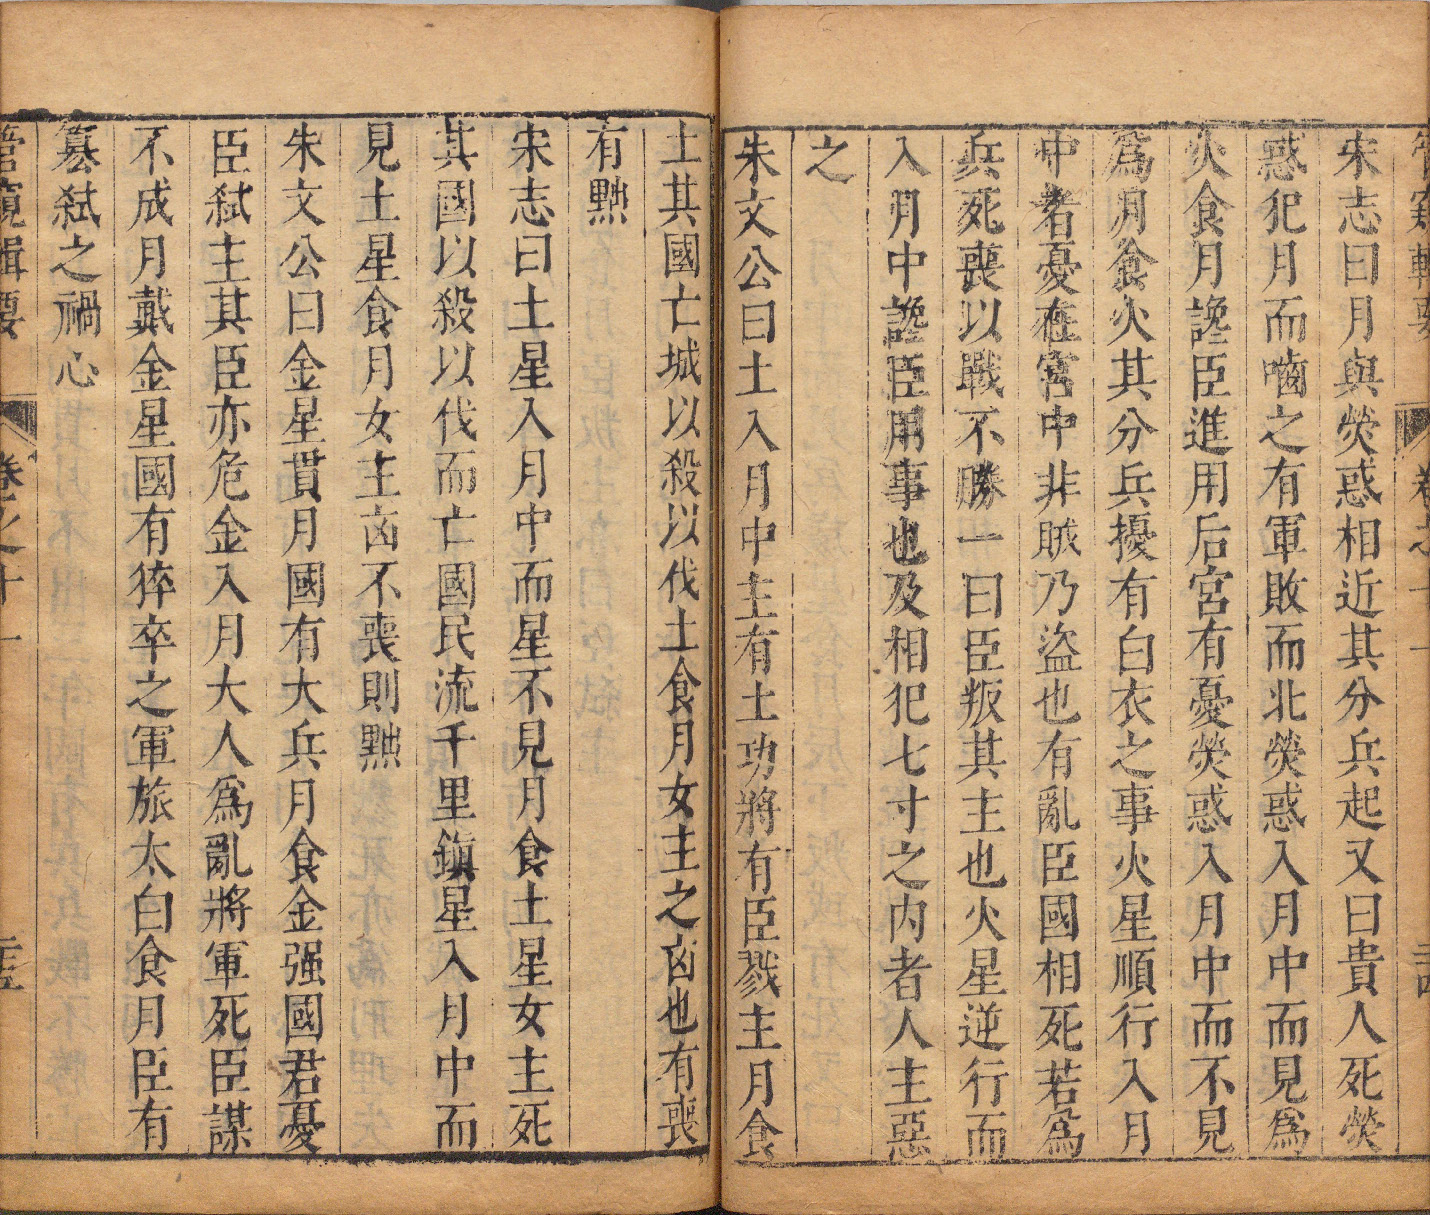 宋志曰月與熒惑相近其分兵起又曰貴人死熒
惑犯月而嚙之有軍敗而北熒惑入月中而見爲
火食月讒臣進用后宮有憂熒惑入月中而不見
爲月食火其分兵擾有白衣之事火星順行入月
中者憂在宮中非賊乃盜也有亂臣國相死若爲
兵死喪以戰不勝一曰臣叛其主也火星逆行而
入月中讒臣用事也及相犯七寸之内者人主惡
之
朱文公曰土入月中主有土功將有臣戮主月食
土其國亡城以殺以伐土食月女主之凶也有喪
有黜
宋志曰土星入月中而星不見月食土星女主死
其國以殺以伐而亡國民流千里鎮星入月中而
見土星食月女主凶不喪則黜
朱文公曰金星貫月國有大兵月食金强國君憂
臣弑主其臣亦危金入月大人爲亂將軍死臣謀
不成月戴金星國有猝卒之軍旅太白食月臣有
篡弑之禍心
管窺輯要 卷之十一